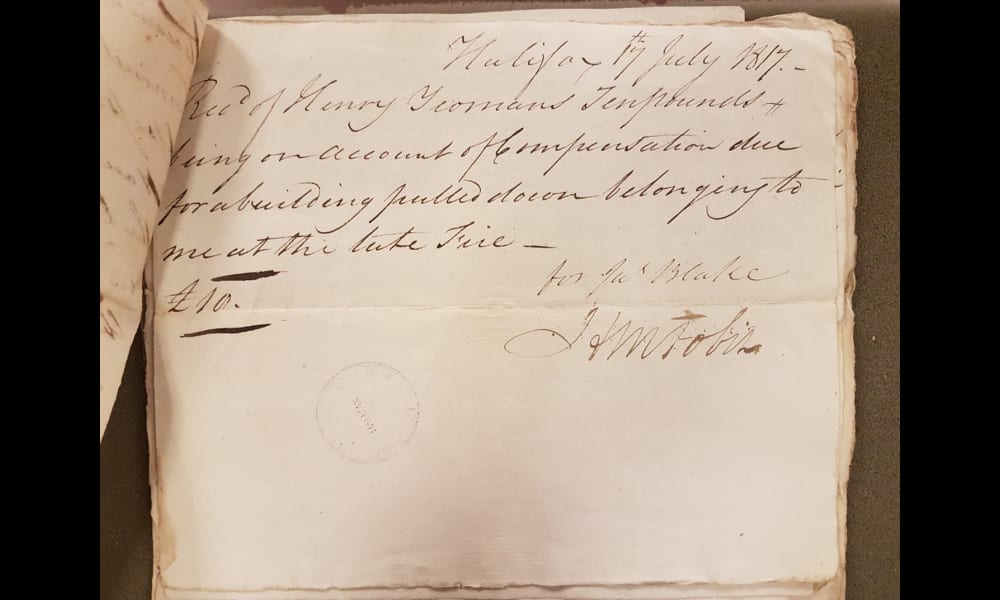 Halifax 17th July 1817.-
Recd of Henry Yeomans Ten pounds
being on account of Compensation due
for a building pulled down belonging to
me at the late Fire —
for Jas Blake
£10.
Tobin